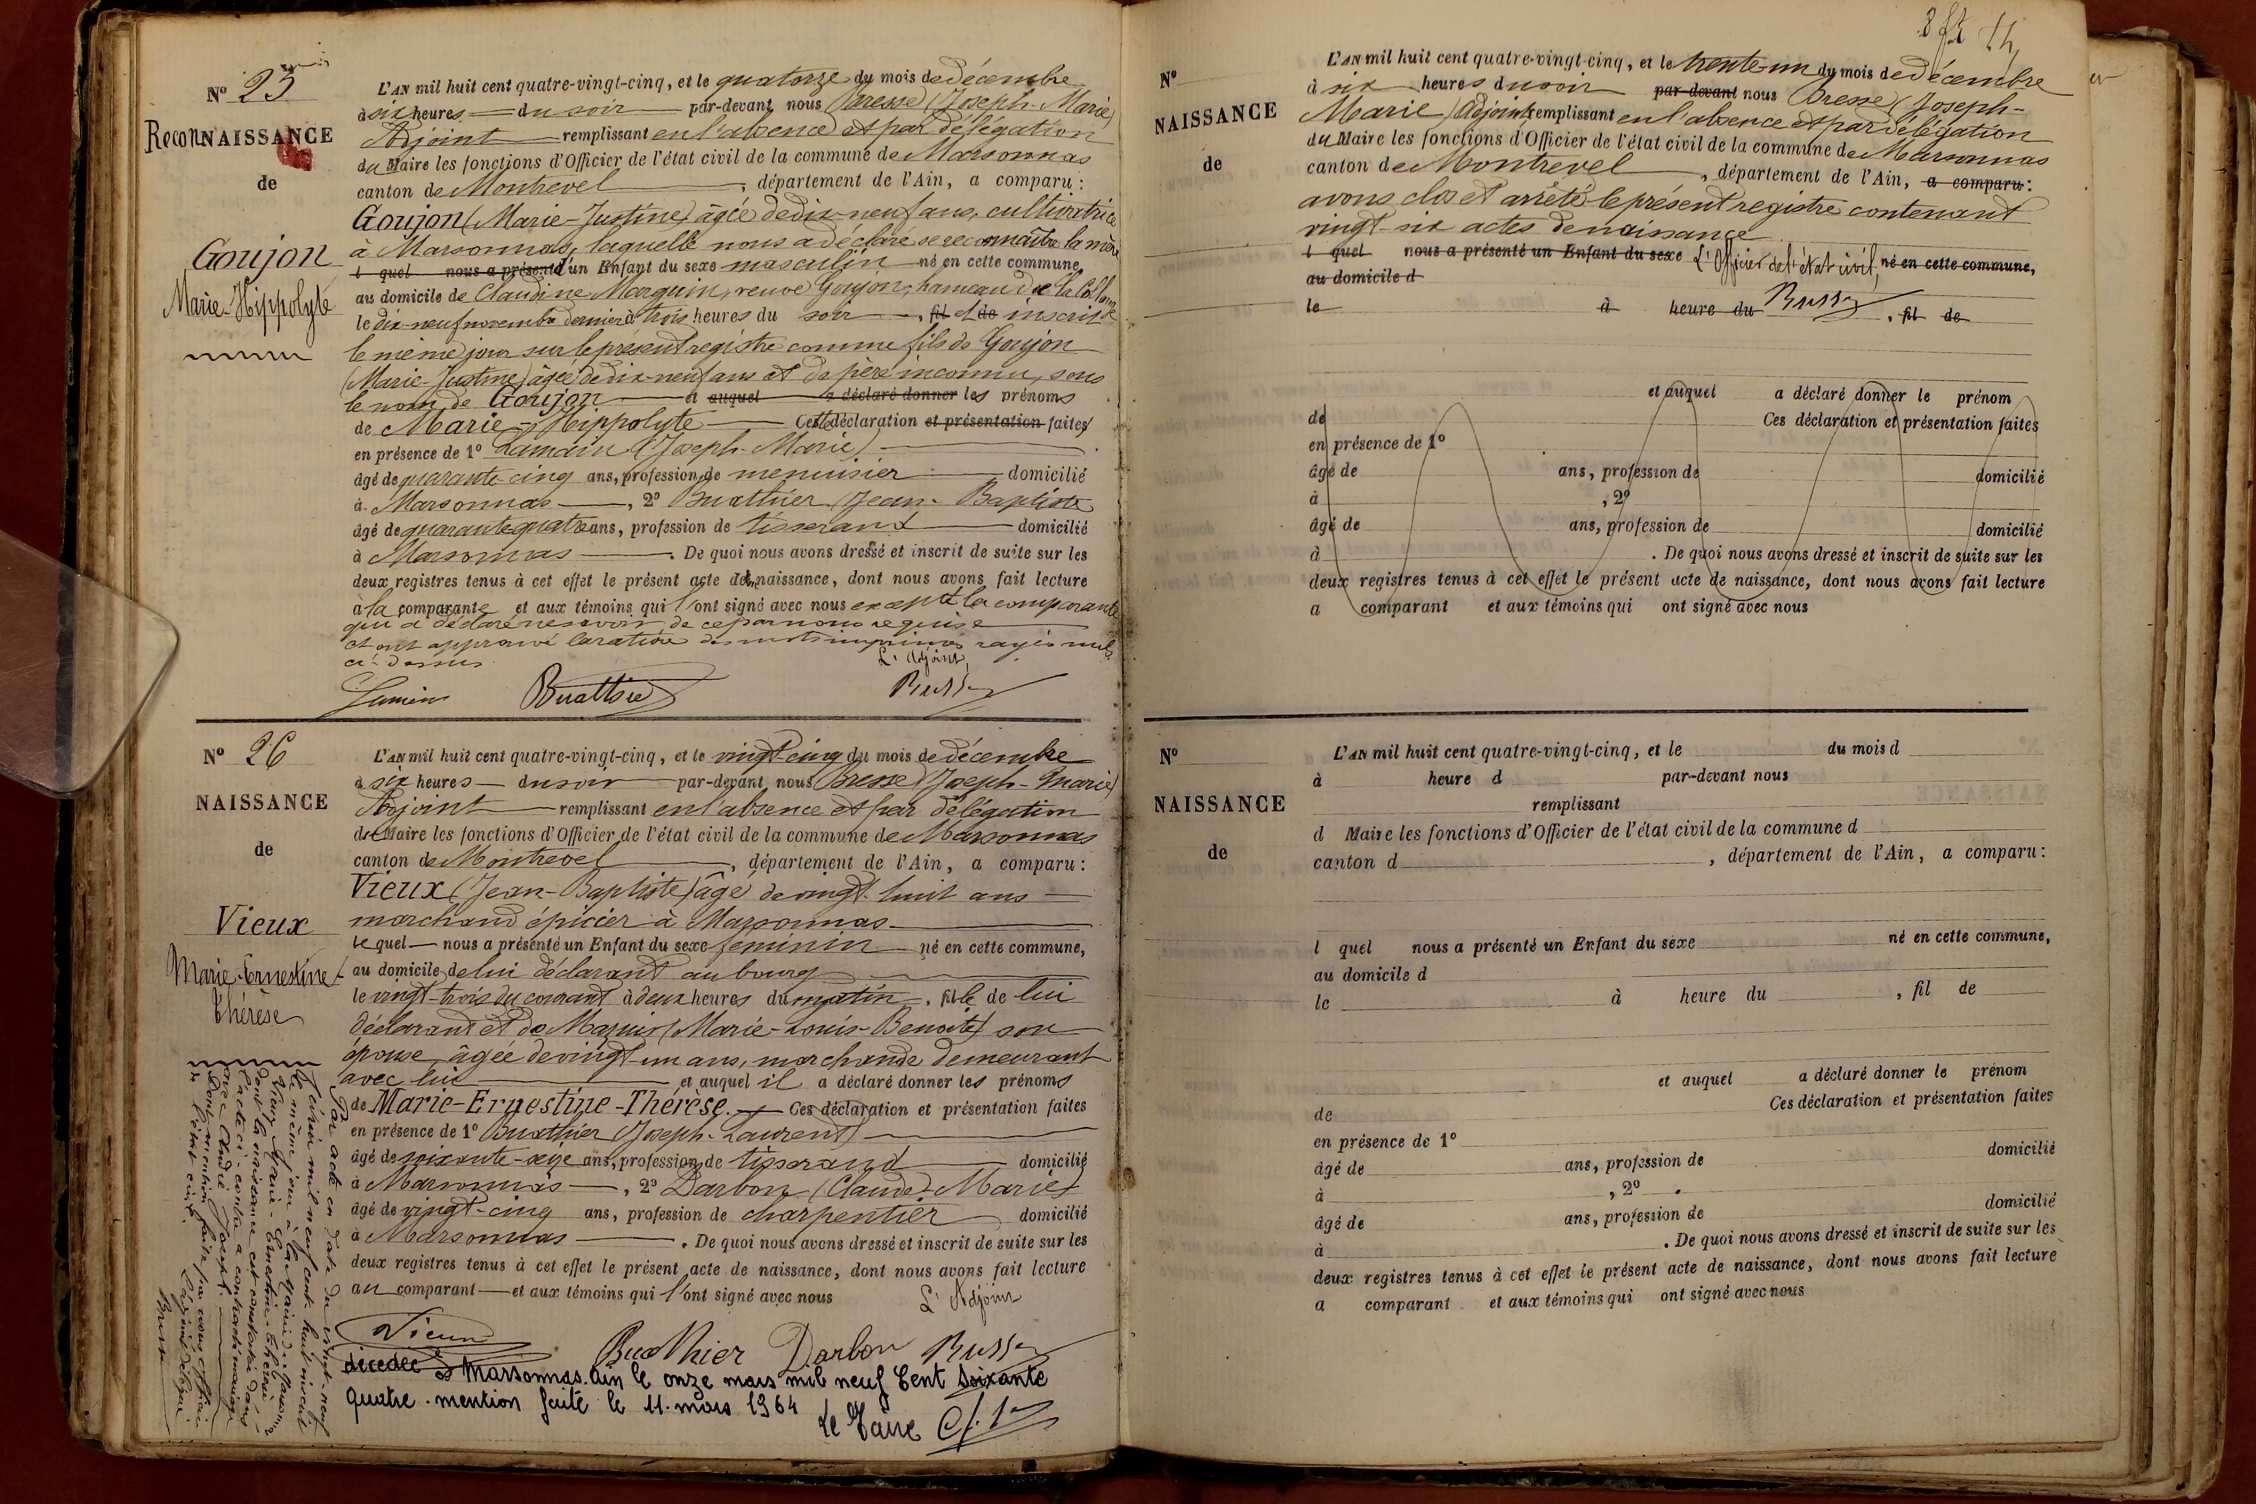 N° 25
ReconNAISSANCE
de
Goujon
Marie-Hippolyte
L'AN mil huit cent quatre-vingt-cinq, et le quatorze du mois de décembre
à six heures du soir par-devant nous Bresse (Joseph-Marie)
Adjoint remplissant en l'absence et par délégation
du Maire les fonctions d'Officier de l'état civil de la commune de Marsonnas
canton de Montrevel, département de l'Ain, a comparu :
Goujon (Marie-Justine) âgée de dix-neuf ans, cultivatrice
à Marsonnas, laquelle nous a déclaré se reconnaître la mère
l quel nous a présenté d'un Enfant du sexe masculin né en cette commune,
au domicile de Claudine Morguin, veuve Goujon, hameau de la
le dix-neuf novembre dernier à trois heures du soir, fil et de inscrit
le même jour sur le présent registre comme fils de Goujon
(Marie-Justine) âgée de dix-neuf ans et de père inconnu, sous
le nom de Goujon et auquel a déclaré donner les prénoms
de Marie-Hippolyte Cette déclaration et présentation faites
en présence de 1° Lamain (Joseph-Marie)
âgé de quarante-cinq ans, profession de menuisier domicilié
à Marsonnas, 2° Buathier (Jean-Baptiste
âgé de quarante-quatre ans, profession de tisserand domicilié
à Marsonnas. De quoi nous avons dressé et inscrit de suite sur les
deux registres tenus à cet effet le présent acte de naissance, dont nous avons fait lecture
à la comparante et aux témoins qui l'ont signé avec nous excepté la comparante
qui a déclaré ne savoir de ce par nous requise
et ont approuvé la rature des mots imprimés rayés nuls
ci-dessus.
L'Adjoint,
Lamain Buathier Bresse
N° 26
NAISSANCE
de
Vieux
Marie-Ernestine-
Thérèse
L'AN mil huit cent quatre-vingt-cinq, et le vingt-cinq du mois de décembre
à six heures du soir par-devant nous Bresse (Joseph-Marie)
Adjoint remplissant en l'absence et par délégation
du Maire les fonctions d'Officier de l'état civil de la commune de Marsonnas
canton de Montrevel, département de l'Ain, a comparu :
Vieux (Jean-Baptiste) âgé de vingt-huit ans
marchand épicier à Marsonnas
le quel nous a présenté un Enfant du sexe féminin né en cette commune,
au domicile de lui déclarant au bourg
le vingt-trois du courant à deux heures du matin, fille de lui
déclarant et de (Marie-Louis-Benoite) son
épouse, âgée de vingt-un ans, marchande demeurant
avec lui et auquel il a déclaré donner les prénoms
de Marie-Ernestine-Thérèse. Ces déclaration et présentation faites
en présence de 1° Buathier (Joseph-Laurent)
âgé de soixante-seize ans, profession de tisserand domicilié
à Marsonnas, 2° Darbon (Claude-Marie)
âgé de vingt-cinq ans, profession de charpentier domicilié
à Marsonnas. De quoi nous avons dressé et inscrit de suite sur les
deux registres tenus à cet effet le présent acte de naissance, dont nous avons fait lecture
au comparant et aux témoins qui l'ont signé avec nous
L'Adjoint
Vieux Buathier Darbon Bresse
décédée à Marsonnas. Ain le onze mars mil neuf Cent Soixante
quatre. mention faite le 11. mars 1964
Le Maire
Par acte en date du vingt-neuf
mil neuf cent huit inscrit
le même jour à la Mairie de Marsonnas
Vieux Marie-Ernestine-Thérèse
dont la naissance est constatée dans
l'acte ci-contre a contracté mariage
avec Joseph.
Dont mention faite par nous officier
de l'état civil.
Bresse
8 14
N°
NAISSANCE
de
L'AN mil huit cent quatre-vingt-cinq, et le trente-un du mois de décembre
à six heures du soir par-devant nous Bresse (Joseph-
Marie) Adjoint remplissant en l'absence et par délégation
du Maire les fonctions d'Officier de l'état civil de la commune de Marsonnas
canton de Montrevel, département de l'Ain, a comparu :
avons clos et arrêté le présent registre contenant
vingt-six actes de naissance
l quel nous a présenté un Enfant du sexe L'Officier de l'état civil, né en cette commune,
au domicile d
le à heure du Bresse, fil de
et auquel a déclaré donner le prénom
de Ces déclaration et présentation faites
en présence de 1°
âgé de ans, profession de domicilié
à , 2°
âgé de ans, profession de domicilié
à . De quoi nous avons dressé et inscrit de suite sur les
deux registres tenus à cet effet le présent acte de naissance, dont nous avons fait lecture
a comparant et aux témoins qui ont signé avec nous
N°
NAISSANCE
de
L'AN mil huit cent quatre-vingt-cinq, et le du mois d
à heure d par-devant nous
remplissant
d Maire les fonctions d'Officier de l'état civil de la commune d
canton d , département de l'Ain, a comparu :
l quel nous a présenté un Enfant du sexe né en cette commune,
au domicile d
le à heure du , fil de
et auquel a déclaré donner le prénom
de Ces déclaration et présentation faites
en présence de 1°
âgé de ans, profession de domicilié
à , 2°
âgé de ans, profession de domicilié
à . De quoi nous avons dressé et inscrit de suite sur les
deux registres tenus à cet effet le présent acte de naissance, dont nous avons fait lecture
a comparant et aux témoins qui ont signé avec nous